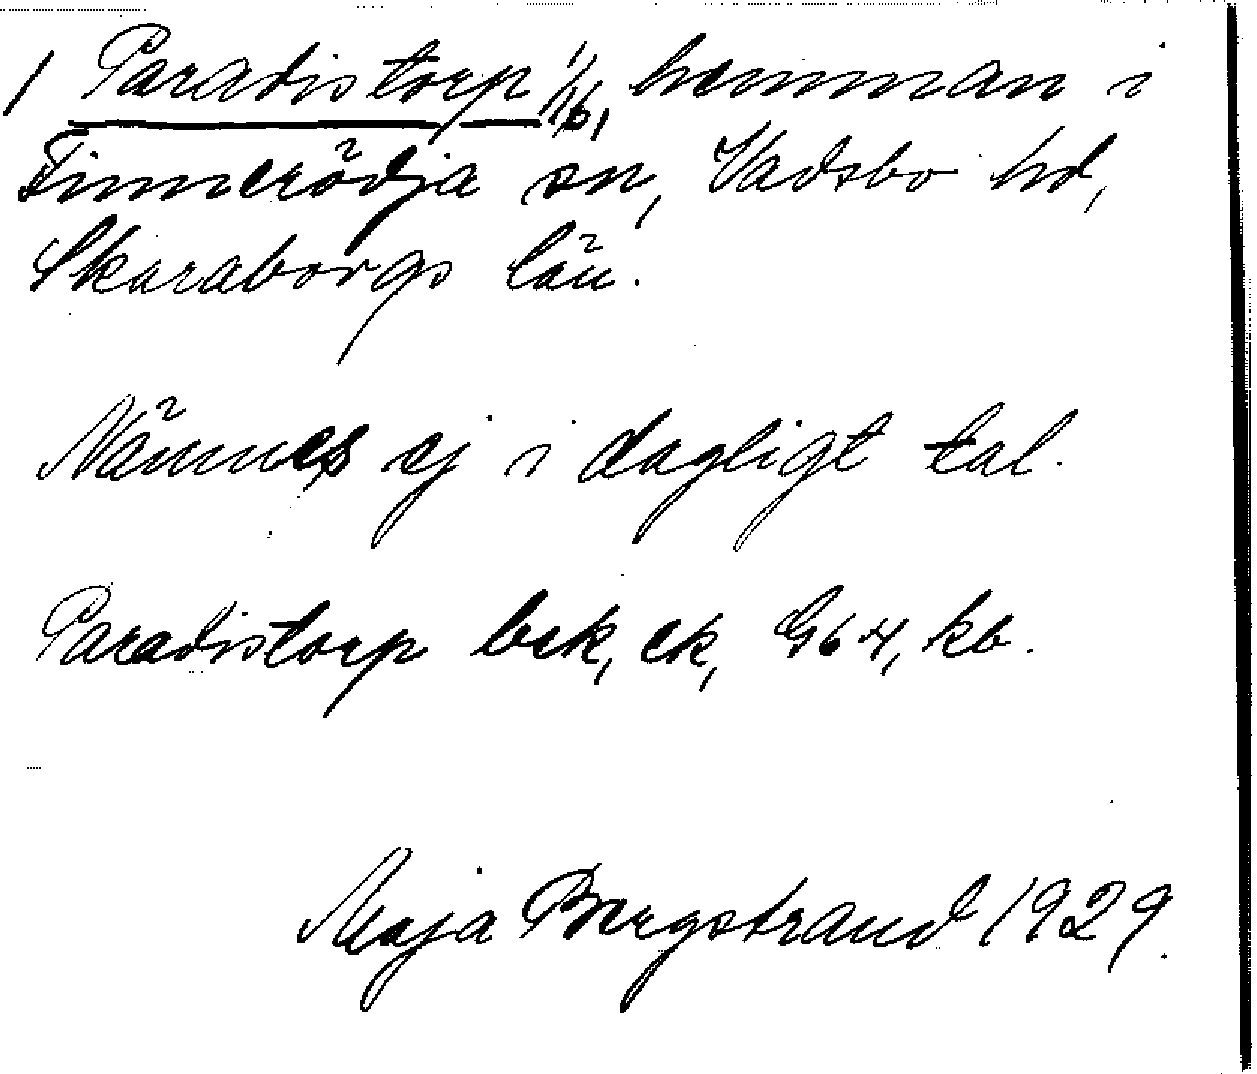 1 Paradistorp 1/16, hemman i
Finnerödja sn, Vadsbo hd,
Skaraborgs län.
Nämnes ej i dagligt tal.
Paradistorp brk, ek, G64, kb.
Maja Bergstrand 1929.